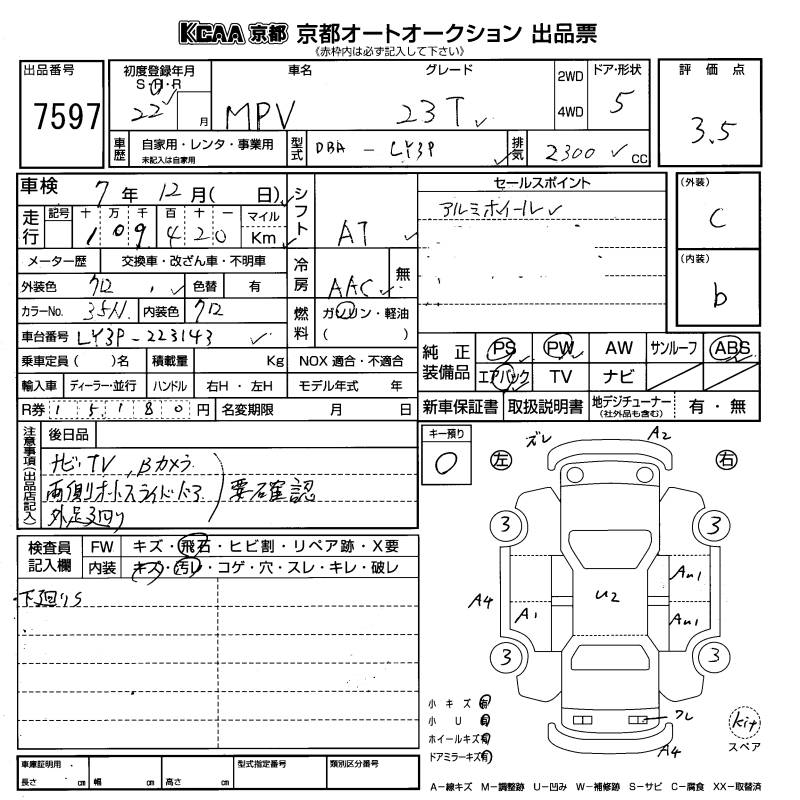 KCAA 京都 京都オートオークション 出品票
《赤枠内は必ず記入して下さい》
出品番号 初度登録年月 車名 グレード 2WD ドア・形状 評価点
S・H・R
7597 22 月 MPV 23T 4WD 5 3.5
車歴 自家用・レンタ・事業用 型式 DBA - LY3P 排気 2300 CC
未記入は自家用
車検 7年 12月( 日) シフト AT セールスポイント (外装)
走行 記号 十 万 千 百 十 一 マイル アルミホイール C
1 0 9 4 2 0 Km
メーター歴 交換車・改ざん車・不明車 冷房 AAC 無 (内装)
外装色 クロ 色替 有 b
カラーNo. 35N 内装色 クロ 燃料 ガソリン・軽油
車台番号 LY3P-223143 ( )
乗車定員( )名 積載量 Kg NOX 適合・不適合 純正装備品 PS PW AW サンルーフ ABS
輸入車 ディーラー・並行 ハンドル 右H・左H モデル年式 年 エアバック TV ナビ
R券 1 5 1 8 0 円 名変期限 月 日 新車保証書 取扱説明書 地デジチューナー 有・無
(社外品も含む)
注意事項(出品店記入) 後日品 キー預り
0
ナビ・TV, Bカメラ
両側オートスライドドア 要確認
外足廻り
ズレ A2
左 右
3 3
検査員記入欄 FW キズ・飛石・ヒビ割・リペア跡・X要
内装 キズ・汚レ・コゲ・穴・スレ・キレ・破レ
下廻りS
A4 A1 U2 AU1
AU1
3 3
小キズ有
小U有
ホイールキズ有
ドアミラーキズ有
ワレ
A4
kit
スペア
車庫証明用 型式指定番号 類別区分番号
長さ cm 幅 cm 高さ cm
A-線キズ M-調整跡 U-凹み W-補修跡 S-サビ C-腐食 XX-取替済